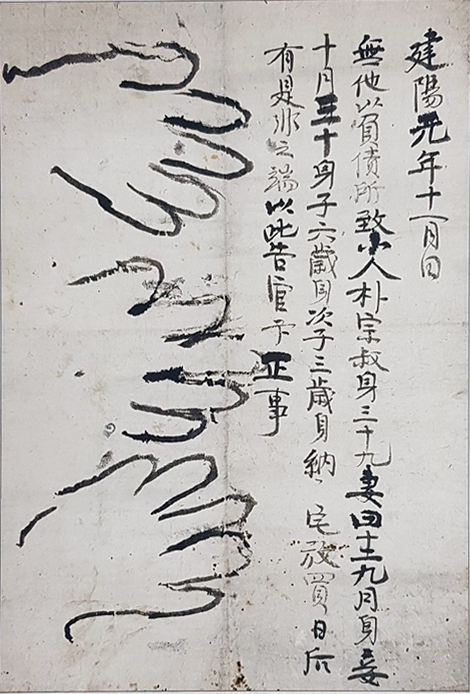 建陽元年十一月日
無他以負債所致小人朴宗叔身三十九妻田士九月身妾
十月三十身子六歲身次子三歲身納 宅放買日后
有是非之端以此告官卞正事